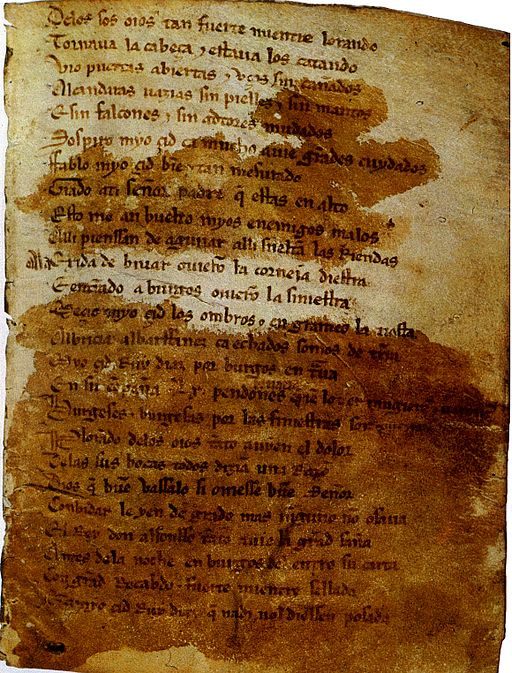 Delos sos oios tan fuerte mientre lorando
Tornaua la cabeça ⁊ estaua los catando
Vio puertas abiertas ⁊ vços sin cañados
Alcandaras uazias sin pielles ⁊ sin mantos
E sin falcones ⁊ sin adtores mudados
Sospiro myo çid ca mucho auie grãdes cuydados
Ffablo myo çid bñe ⁊ tan mesurado
Grado ati señor padre q̃ estas en alto
Esto me an buelto myos enemigos malos
Alli pienssan de aguiiar alli sueltã las Riendas
Ala exida de biuar ouierõ la corneia diestra
E entrãdo a burgos ouierõ la siniestra
Meçio myo çid los ombros ⁊ engrameo la tiesta
Albriçia albarffanez ca echados somos de tr̃ra
Myo çid Ruy diaz por burgos en traua
En su cõpaña Lx pendones
Burgeses ⁊ burgesas por las finiestras
Plorando delos oios tãto auyen el dolor
Delas sus bocas todos dizian una Razõ
Dios q̃ buẽ vassalo si ouiesse buẽ Señor
Conbidar le yen de grado mas ninguno nõ osaua
El Rey don alfonsso tãto auie la grãd saña
Antes dela noche en burgos del entro su carta
Con grãd Recabdo ⁊ fuerte mientre sellada
q̃ nadi nol diessen posada